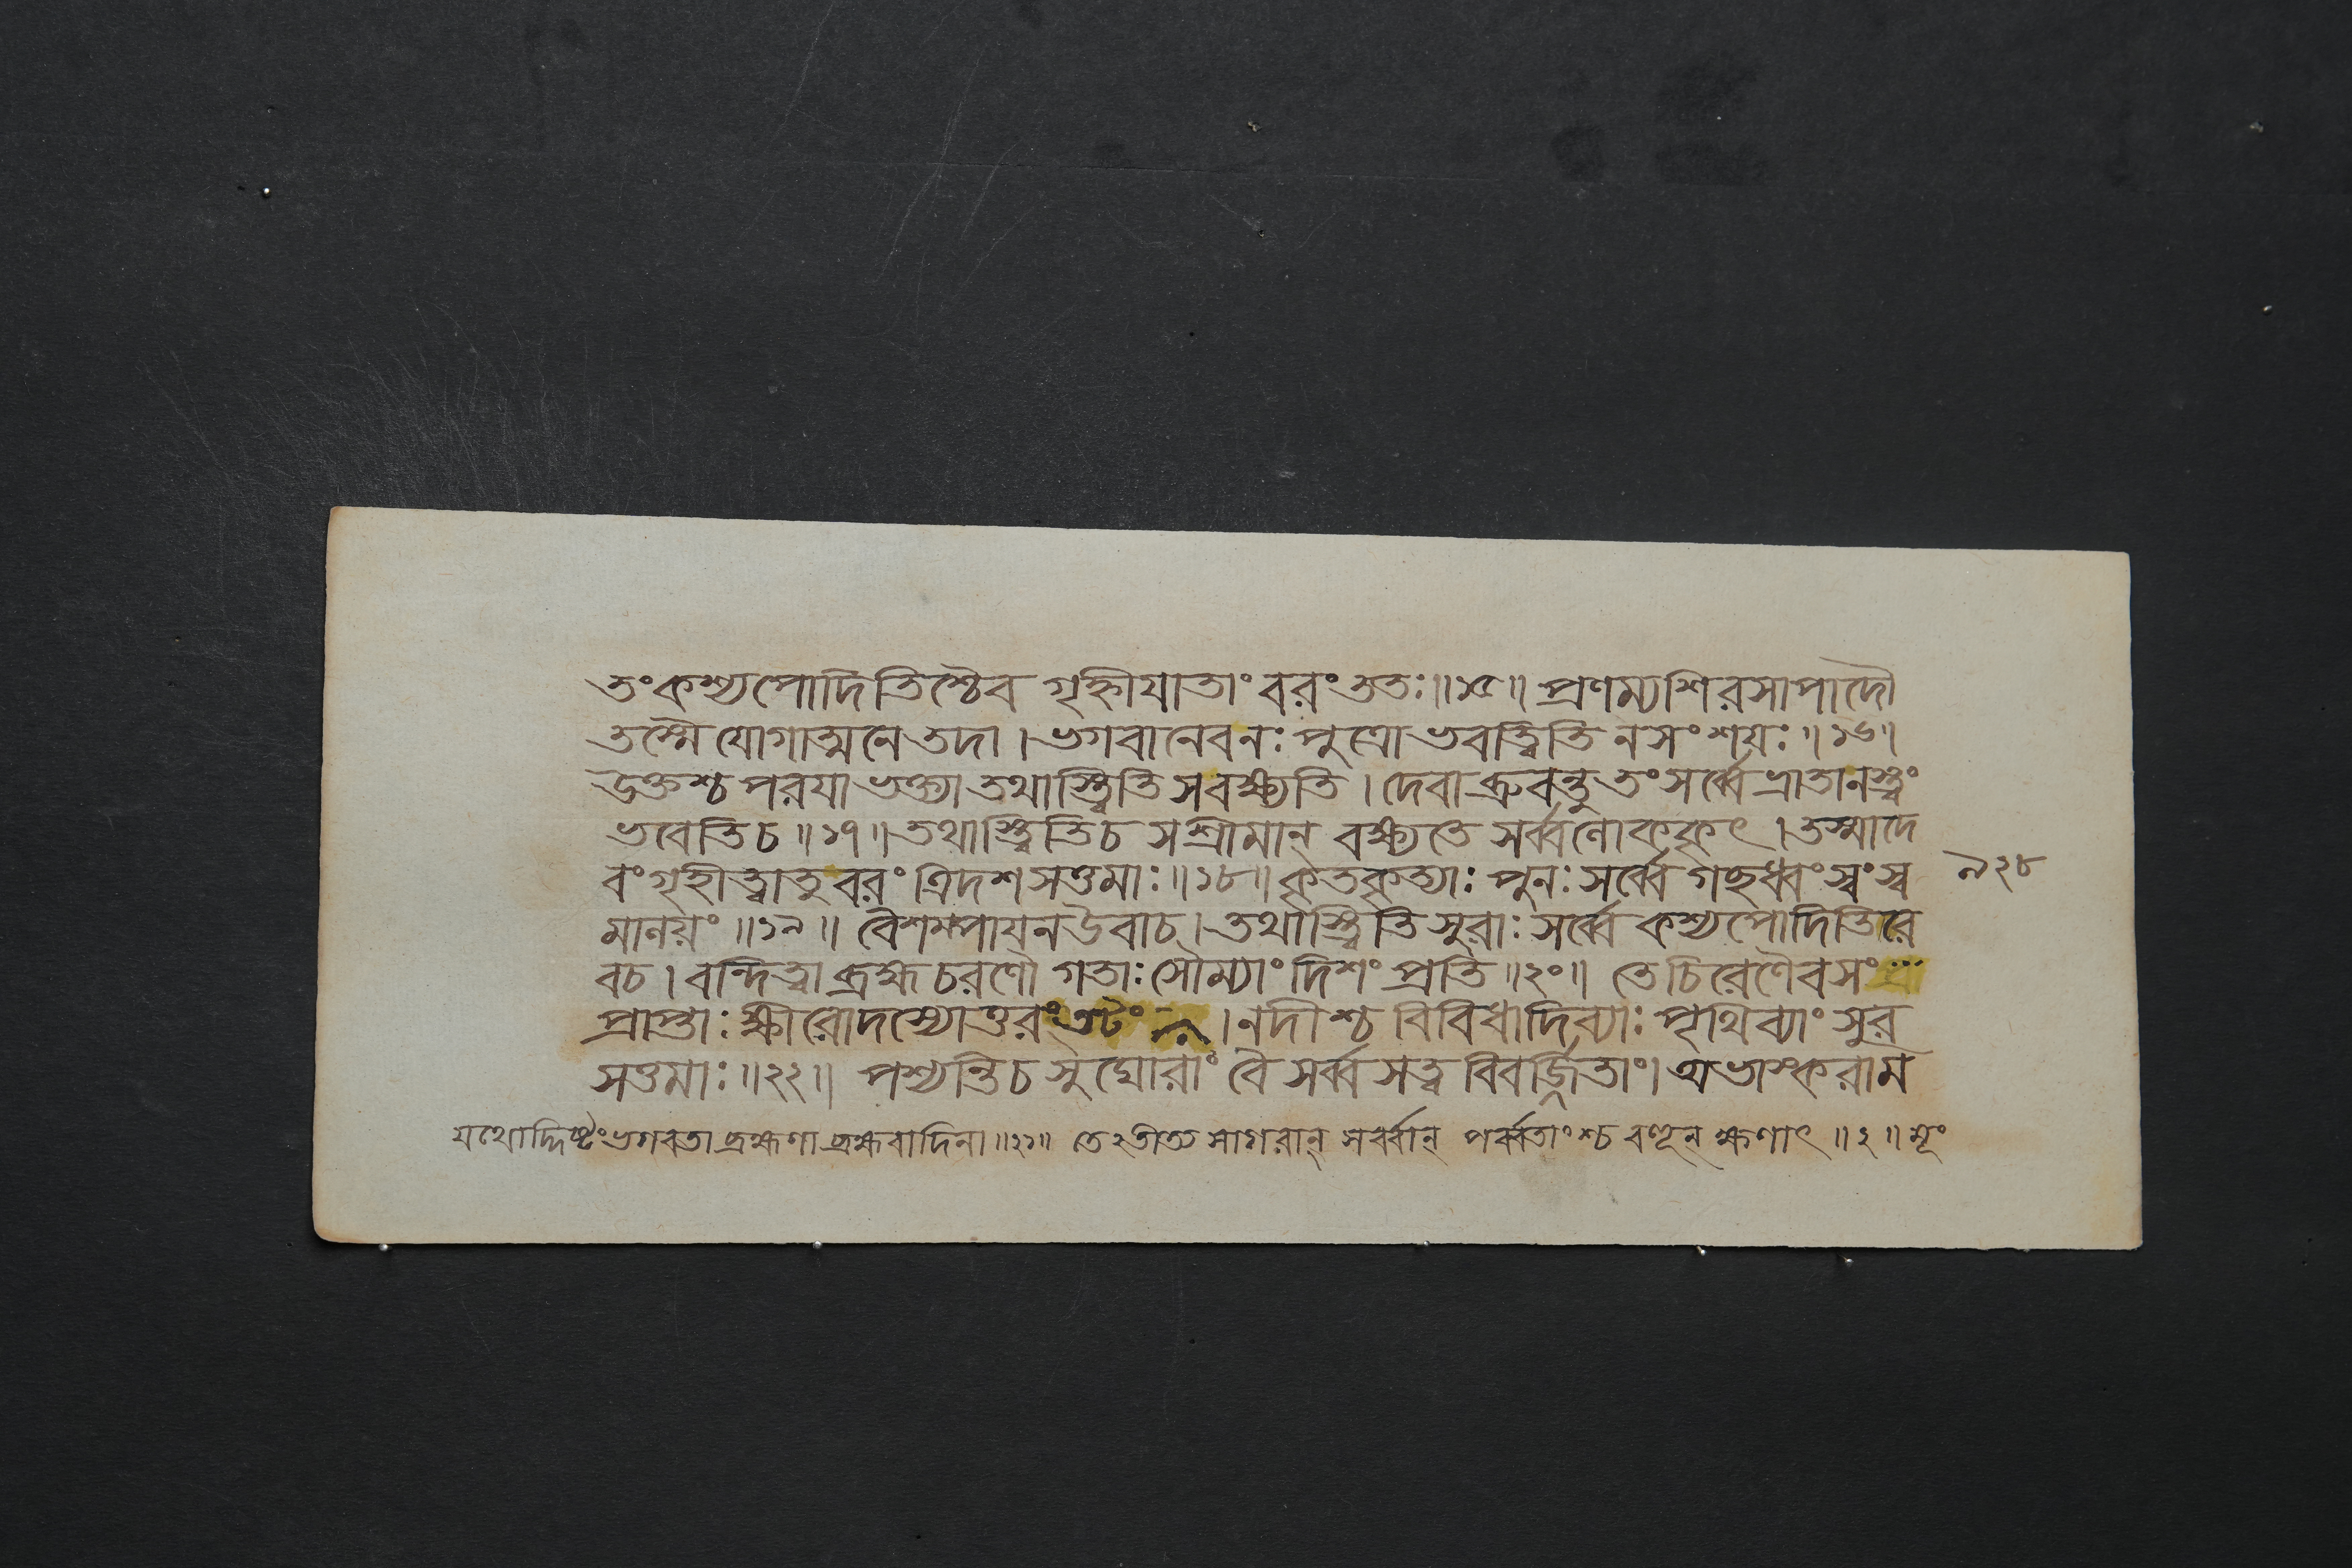 তং কশ্যপোদিতিশ্চৈব গৃহ্নীযাতাং বরং ততঃ॥১৫॥ প্রণম্যশিরসাপাদৌ
তস্মৈ যোগাত্মনে তদা। ভগবানেবনঃ পুত্রো ভবত্ত্বিতি নসংশয়ঃ॥১৬॥
উক্তশ্চ পরযা ভক্ত্যা তথাস্ত্বিতি সবক্ষ্যতি। দেবা ব্রুবন্তু তং সর্ব্বে ভ্রাতানস্ত্বং
ভবেতিচ॥১৭॥ তথাস্ত্বিতিচ সশ্রীমান্ বক্ষ্যতে সর্ব্বলোককৃৎ। তস্মাদে
বং গৃহীত্বা তু বরং ত্রিদশসত্তমাঃ॥১৮॥ কৃতকৃত্যাঃ পুনঃ সর্ব্বে গচ্ছধ্বং স্বং স্ব
৯২৮
মালয়ং॥১৯॥ বৈশম্পাযন উবাচ। তথাস্ত্বিতি সুরাঃ সর্ব্বে কশ্যপোদিতিরে
বচ। বন্দিত্বা ব্রহ্মচরণৌ গতাঃ সৌম্যাং দিশং প্রতি॥২০॥ তেচিরেণৈবসং
প্রাপ্তাঃ ক্ষীরোদস্যোত্তরং তটং। নদীশ্চ বিবিধাদিব্যাঃ পৃথিব্যাং সুর
সত্তমাঃ॥২২॥ পশ্যন্তিচ সুঘোরাং বৈ সর্ব্বসত্ব বিবর্জ্জিতাং। অভাস্করাম
যথোদ্দিষ্টং ভগবতা ব্রহ্মণা ব্রহ্মবাদিনা॥২১॥ তেঽতীত্য সাগরান্ সর্ব্বান্ পর্ব্বতাংশ্চ বহূন্ ক্ষণাৎ॥২॥